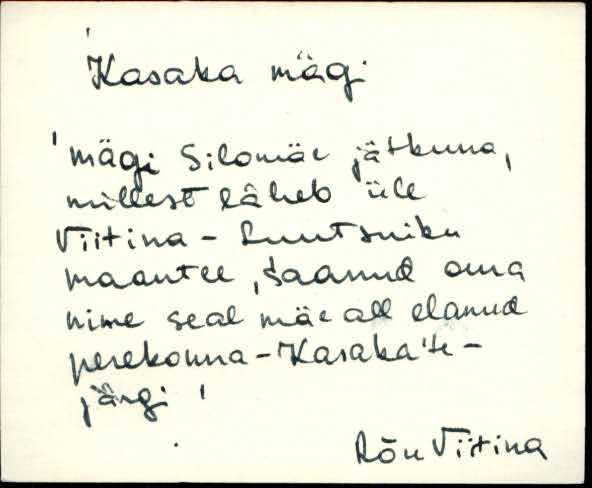 'Kasaka mägi
'mägi Silomäe jätkuna,
millest läheb üle
Viitina - Luutsniku
maantee, saanud oma
nime seal mäe all elanud
perekonna - Kasaka'te -
järgi '
Rõu Viitina